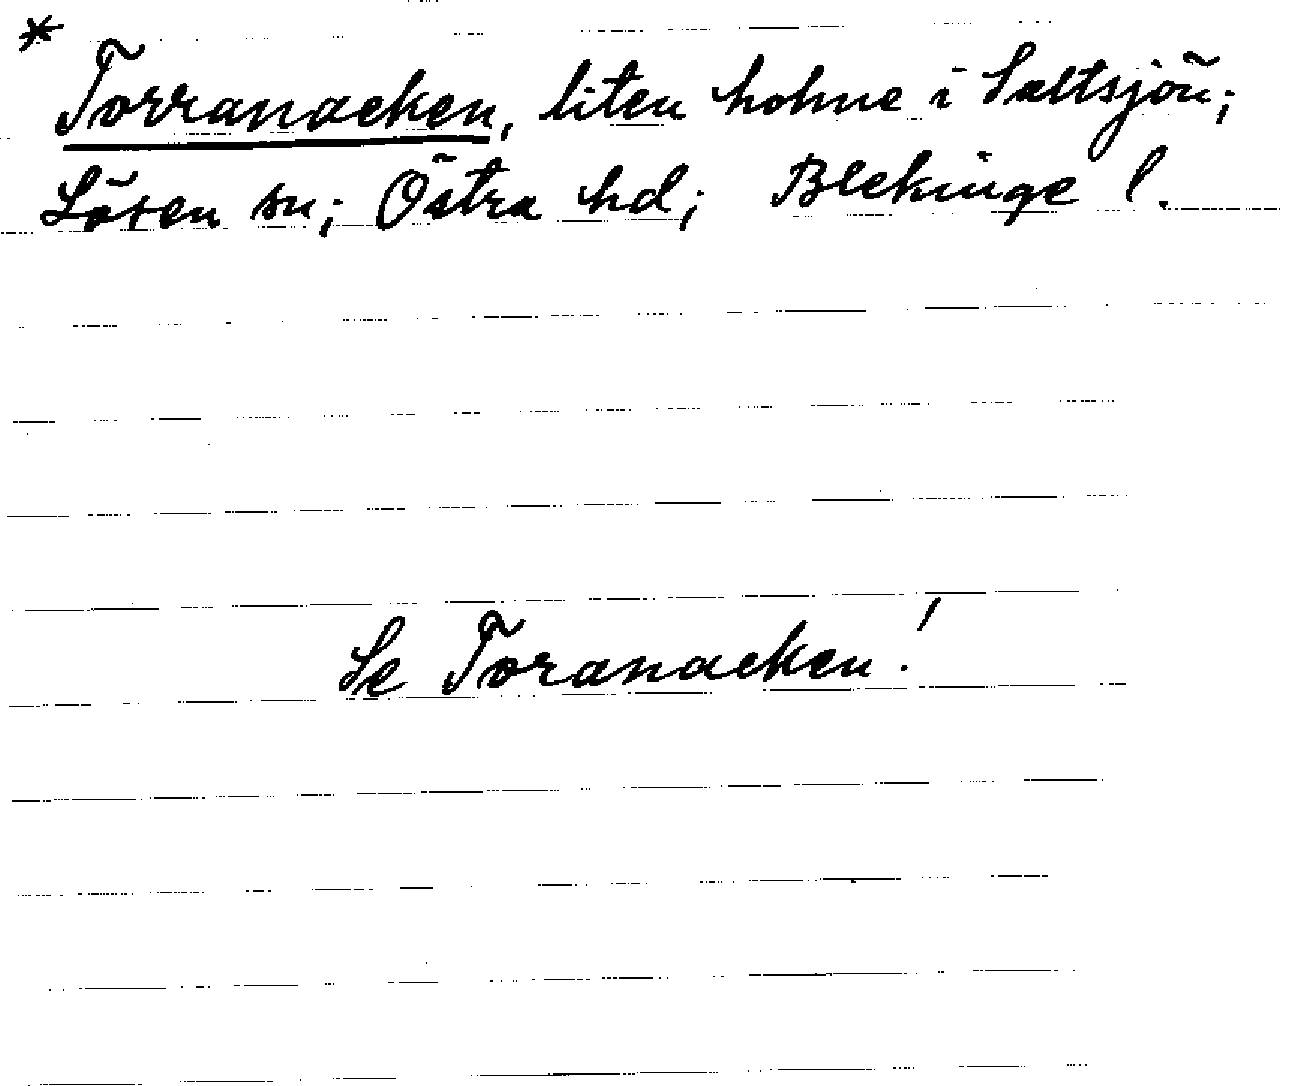 * Torranacken, liten holme i Saltsjön;
Lösen sn; Östra hd; Blekinge l.
Se Toranacken!